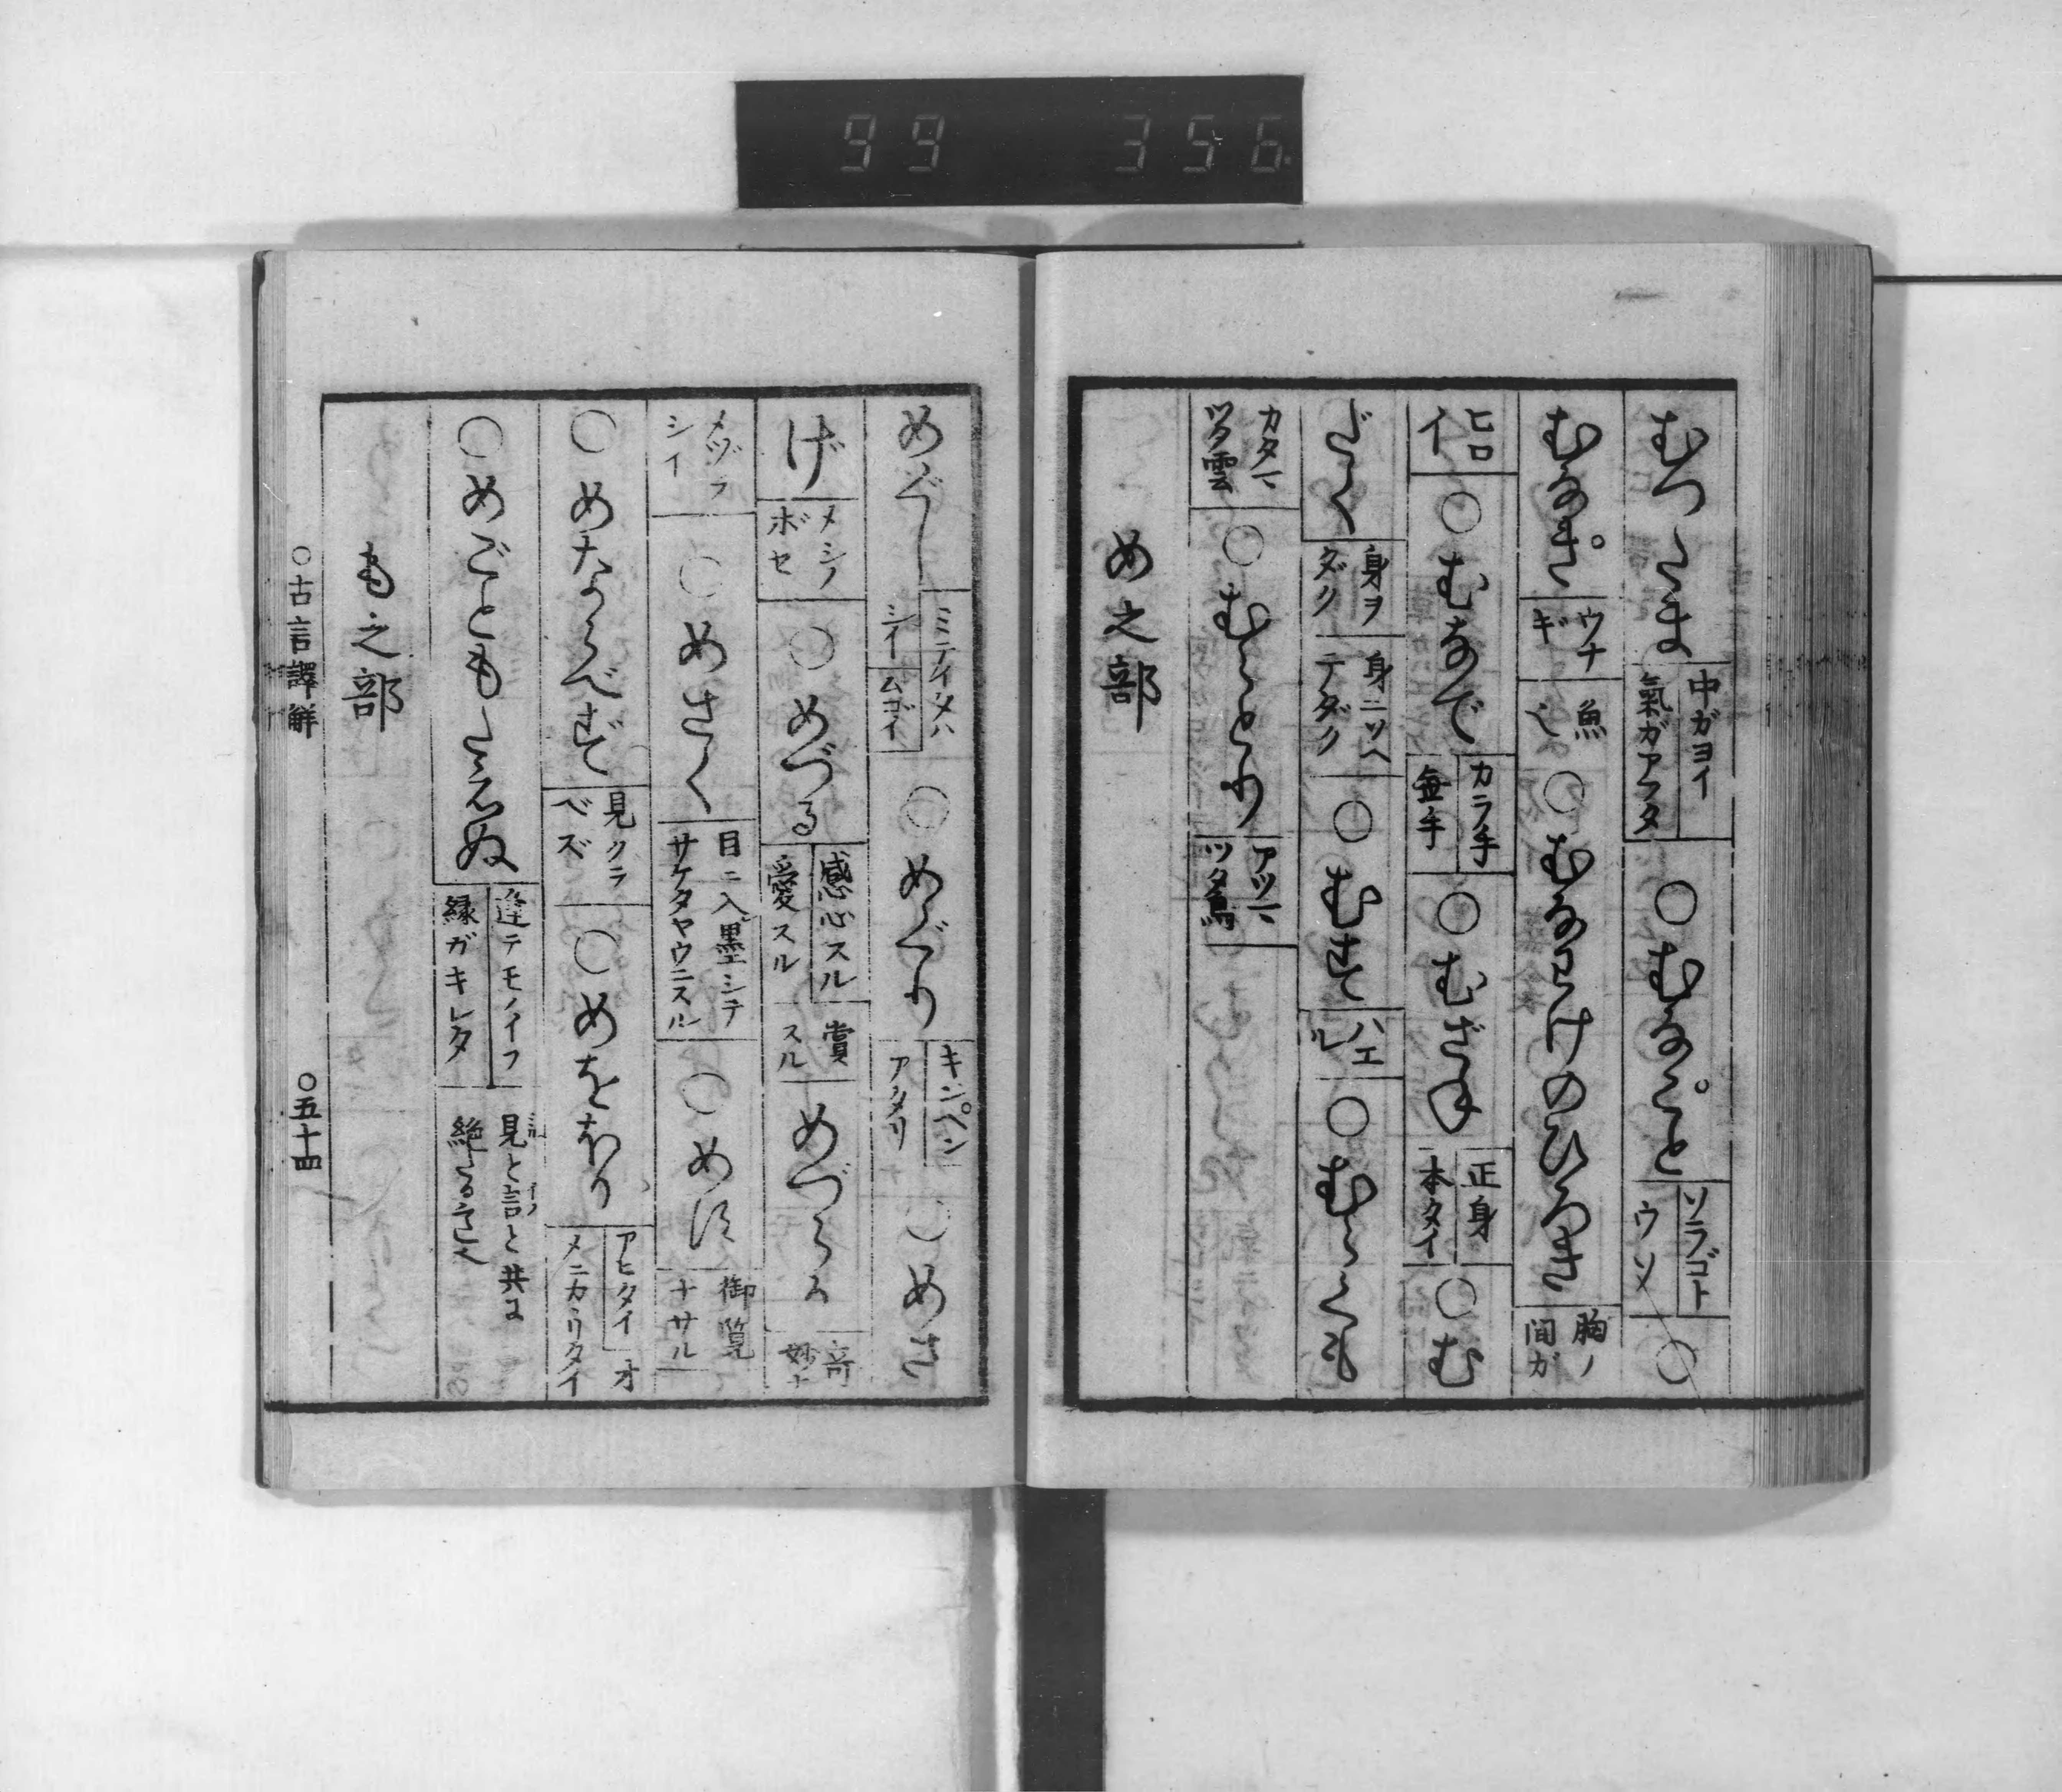 99 356
むつたま 中ガヨイ 氣ガアフタ ○むなこと ソラゴト ウソ ○
むなぎ ウナギ 魚 ○むなわけのひろき 胸ノ間ガ
ヒロイ ○むなで カラ手 無手 ○むざね 正身 本タイ ○む
だく 身ヲダク 身ニソヘテダク ○むす ハエル ○むらくも
カタマツタ雲 ○むらとり アツマツタ鳥
め之部
めぐし ミテイタハシイ ムゴイ ○めぐり キンペン アタリ ○めさ
げ メシノボセ ○めづる 感心スル 愛スル 賞スル めづらか 奇妙ナ
メヅラシイ ○めさく 目ニ入墨シテサケタヤウニスル ○めす 御覧ナサル
○めたくらべず 見クラベズ ○めをほり アヒタイ オメニカヽリタイ
○めごともたえぬ 逢テモノイフ縁ガキレタ 見と言と共に絶たる也
も之部
○古言譯解 ○五十四